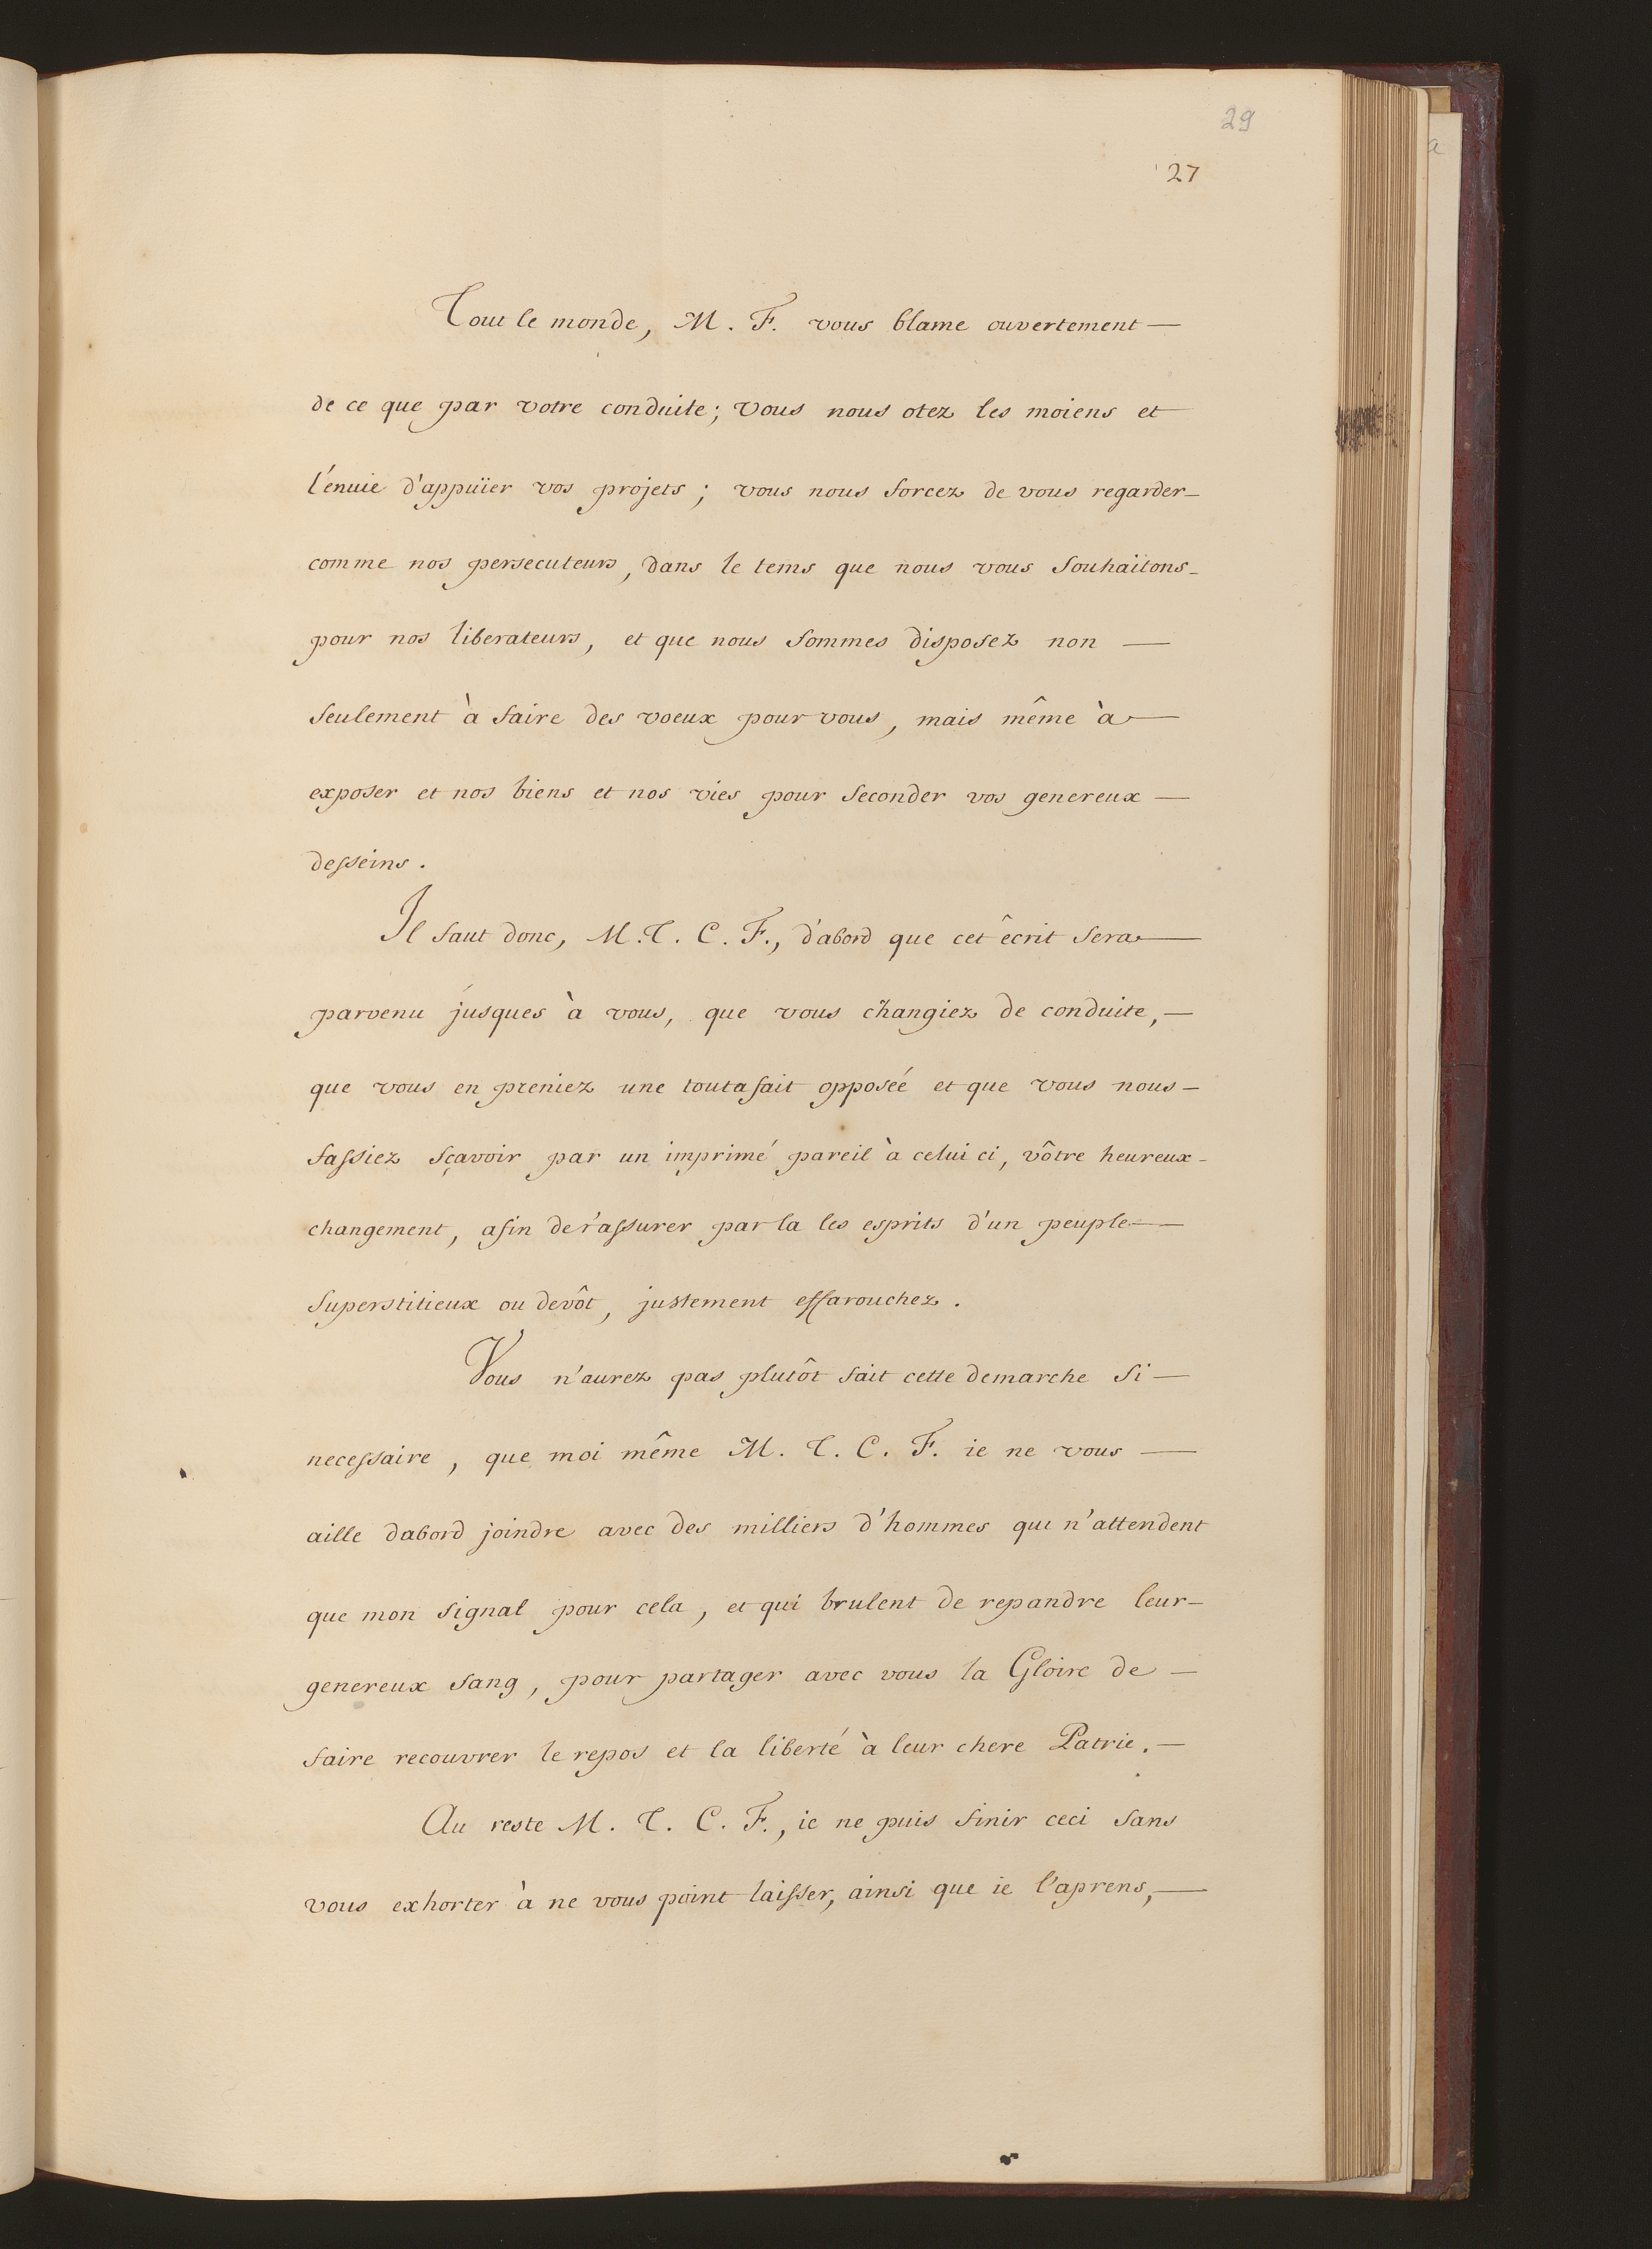 29
27
Tout le monde, M. F. vous blame ouvertement —
de ce que par votre conduite; vous nous otez les moiens et
l'énuie d'appuïer vos projets; vous nous forcez de vous regarder —
comme nos persecuteurs, dans le tems que nous vous souhaitons —
pour nos liberateurs, et que nous sommes disposez non —
seulement à faire des voeux pour vous, mais même à —
exposer et nos biens et nos vies pour seconder vos genereux —
desseins.
Il faut donc, M. T. C. F., d'abord que cet êcrit sera —
parvenu jusques à vous, que vous changiez de conduite, —
que vous en preniez une toutafait opposéé et que vous nous —
fassiez sçavoir par un imprimé pareil à celui ci, vôtre heureux —
changement, afin de r'assurer par la les esprits d'un peuple —
superstitieux ou devôt, justement effarouchez.
Vous n'aurez pas plutôt fait cette demarche si —
necessaire, que moi même M. T. C. F. ie ne vous —
aille dabord joindre avec des milliers d'hommes qui n'attendent
que mon signal pour cela, et qui brulent de repandre leur —
genereux sang, pour partager avec vous la Gloire de —
faire recouvrer le repos et la liberté à leur chere Patrie. —
Au reste M. T. C. F., ie ne puis finir ceci sans
vous exhorter à ne vous point laisser, ainsi que ie l'aprens, —